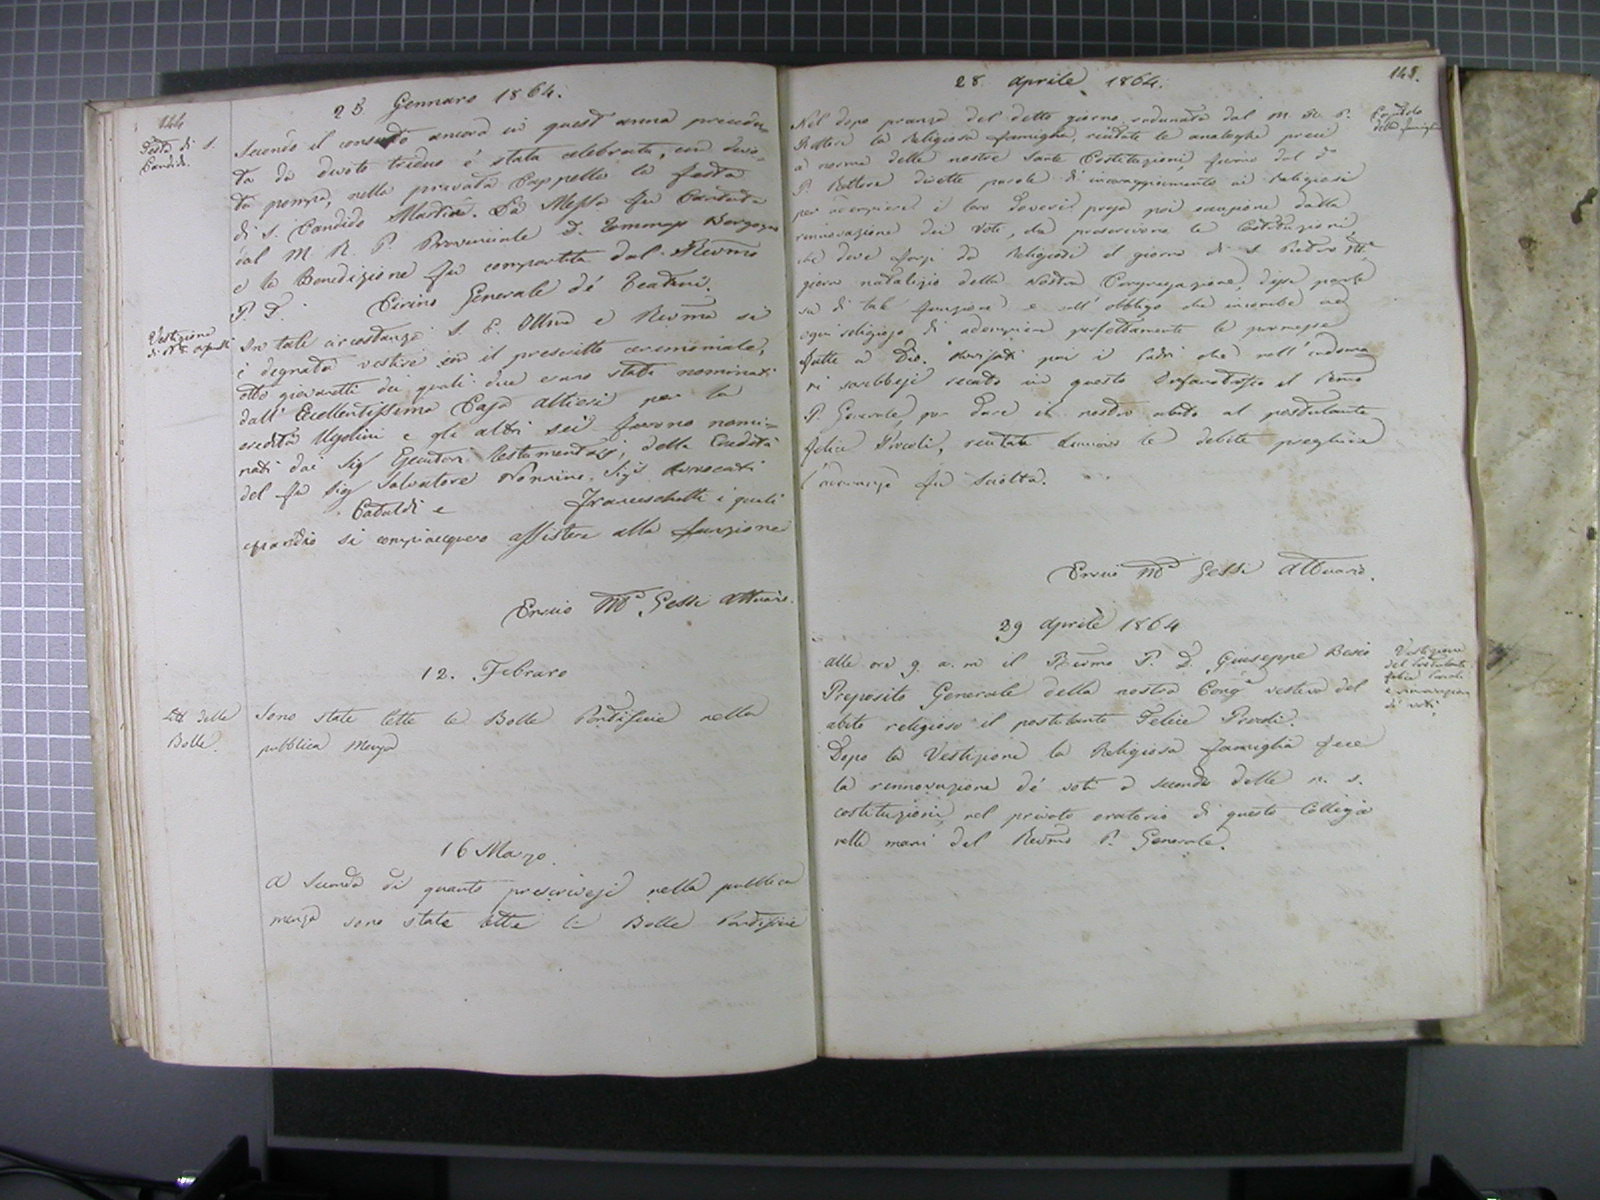 144
25 Gennaro 1864.
Festa di S.
Candido.
Secondo il consueto ancora in quest'anna precedu-
ta da divoto triduo è stata celebrata, con devo-
ta pompa, nella privata Cappella la festa
di S. Candido Martire. La Messa fu cantata
dal M. R. P. Provinciale D. Tommaso Borgogno
e la Benedizione fu compartita dal Revmo
P. D. Cirino Generale de' Teatini.
Vestizione
In tale circostanza S. E. Illma e Revma si
è degnata vestire con il prescritto cerimoniale,
otto giovanetti dei quali due erano stati nominati
dall' Eccellentissima Casa Altieri per la
eredità Ugolini e gli altri sei furono nomi=
nati dai Sigi Esecutori testamentarj, della Eredità
del fu Sig Salvatore Sigi Avvocati
Cataldi e Franceschetti i quali
si compiacquero assistere alla funzione
Gessi Attuario.
12. Febraro
Lett. delle
Bolle.
Sono state lette le Bolle Pontificie nella
pubblica Menza
16 Marzo.
A seconda di quanto prescrivesi nella pubblica
menza sono state lette le Bolle Pontificie
28 Aprile 1864.
145.
Capitolo
della famiglia
Nel dopo pranzo del detto giorno, radunata dal M. R. P.
Rettore la Religiosa famiglia, recitate le analoghe preci
a norma delle nostre sante Costituzioni, furono dal do
P. Rettore dirette parole di incoraggiamento ai Religiosi
per adempiere i loro doveri, presa poi occasione dalla
rinnovazione dei Voti, che prescrivono le Costituzioni,
che deve farsi da Religiosi il giorno di S. Pietro
giorno natalizio della Nostra Congregazione, disse parole
su di tale funzione e sull' obbligo che incombe ad
ogni religioso di adempiere perfettamente le promesse
fatte a Dio. Avvisati poi i Padri che nell' indomani
si sarebbe recato in questo Orfanotrofio il Revmo
P. Generale, per dare il nostro abito al postulante
Felice Pivoli, recitate di nuovo le debite preghiere
l'adunanza fu sciolta.
Gessi Attuario.
29 Aprile 1864
Vestizione
del Postulante
alle ore 9. a. m il Revmo P. D. Giuseppe Besio
Preposito Generale della nostra Conge vestiva del
abito religioso il postulante Felice
Dopo la Vestizione la Religiosa famiglia fece
la rinnovazione de' voti a seconda delle n. s.
costituzioni, nel privato oratorio di questo Collegio
nelle mani del Revmo P. Generale.